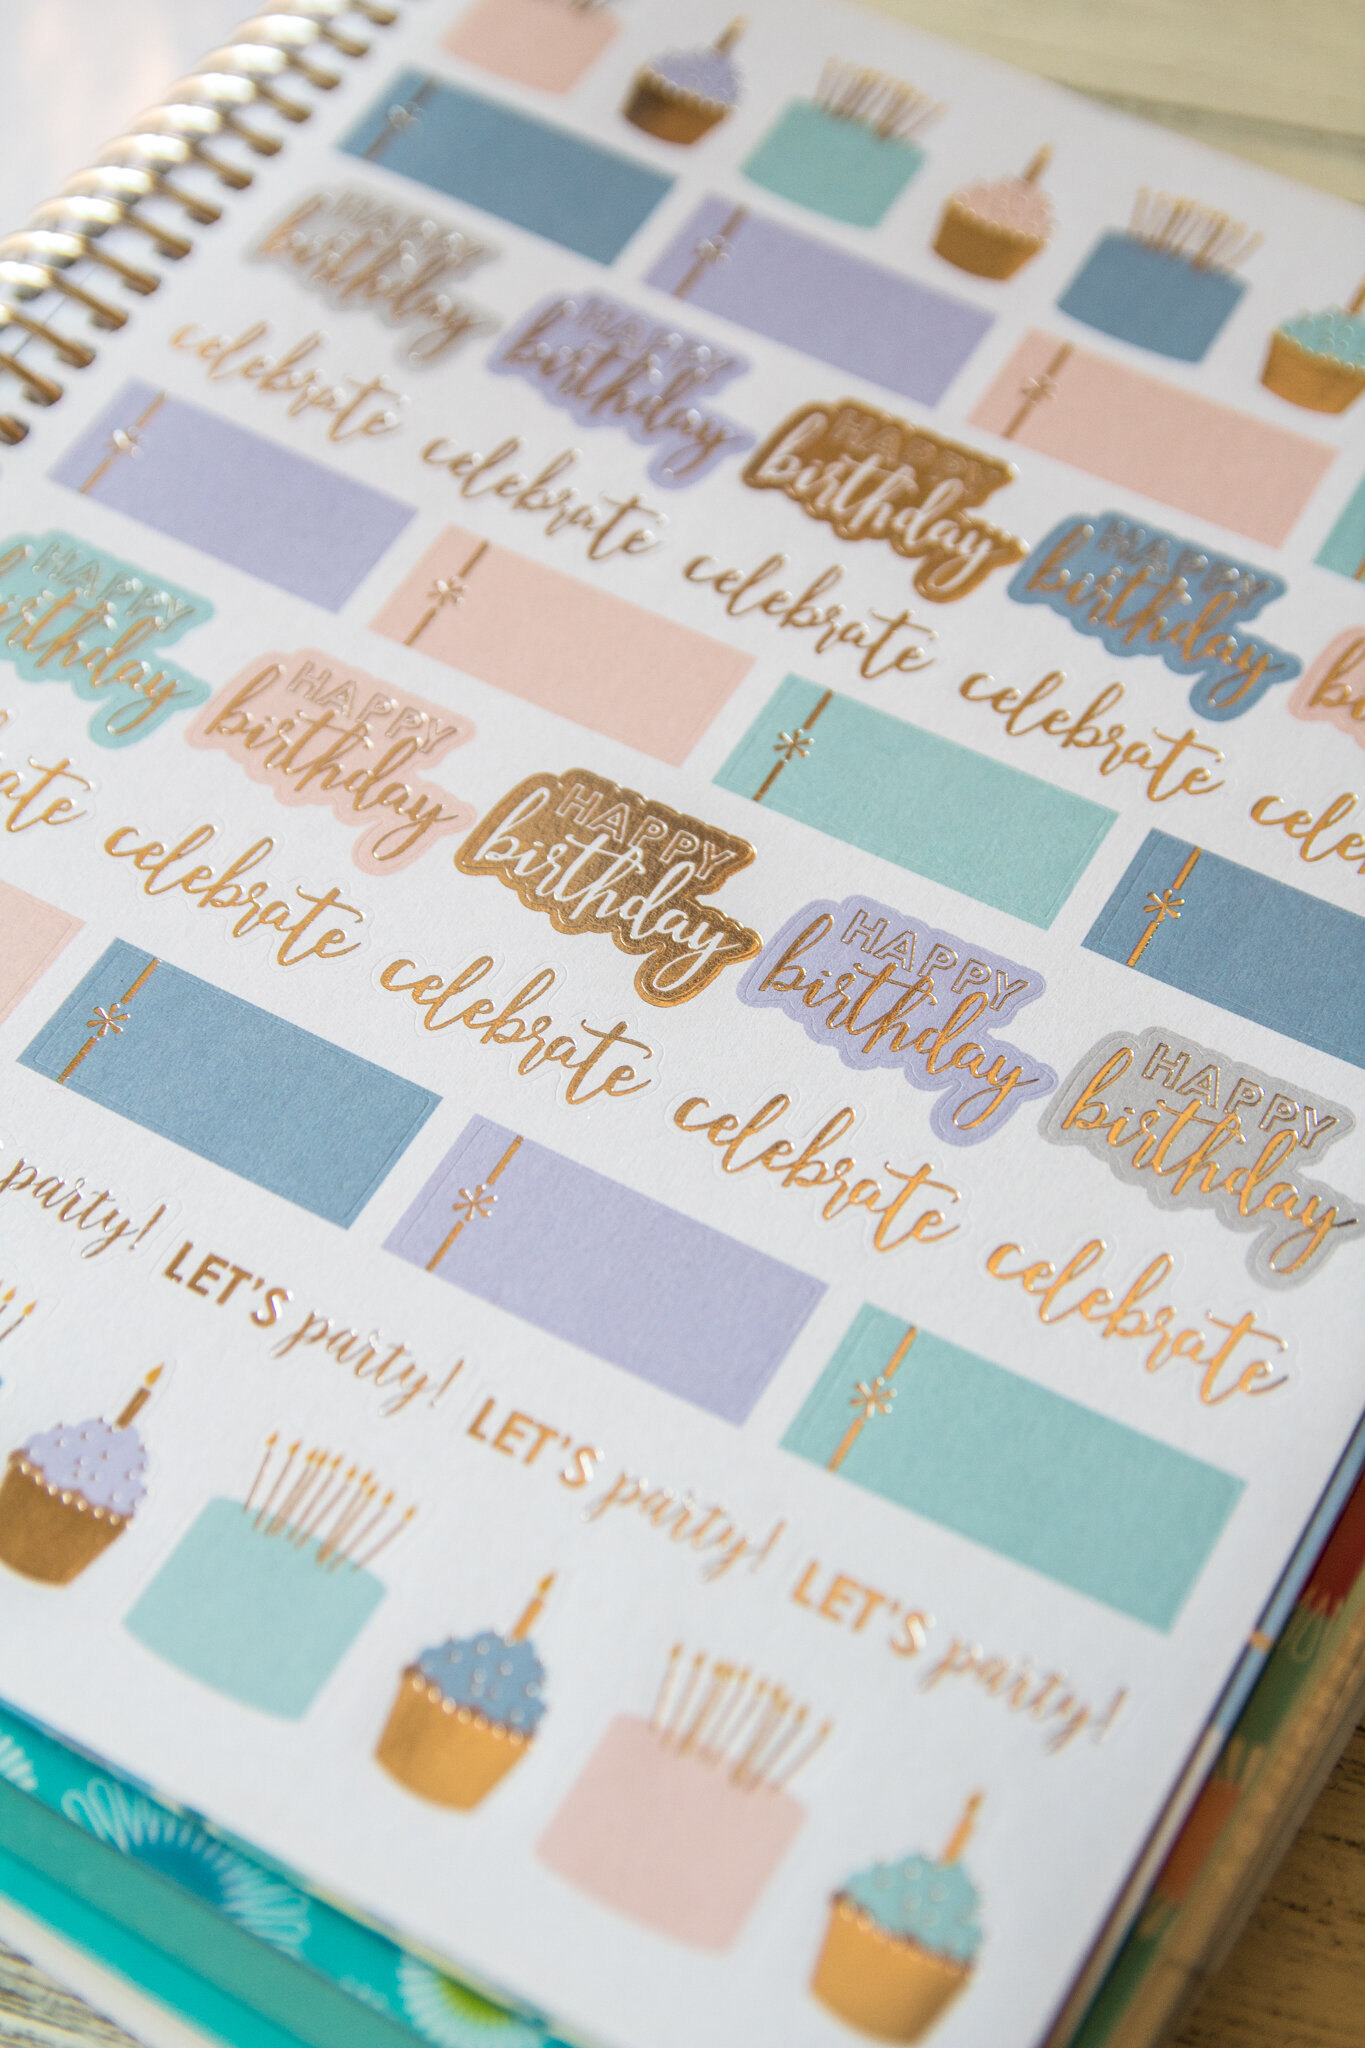 HAPPY
birthday
HAPPY
birthday
HAPPY
birthday
HAPPY
birthday
celebrate celebrate celebrate celebrate cele
HAPPY
irthday
HAPPY
birthday
HAPPY
birthday
HAPPY
birthday
HAPPY
birthday
rate celebrate celebrate celebrate celebrate
party! LET'S party! LET'S party! LET'S party!